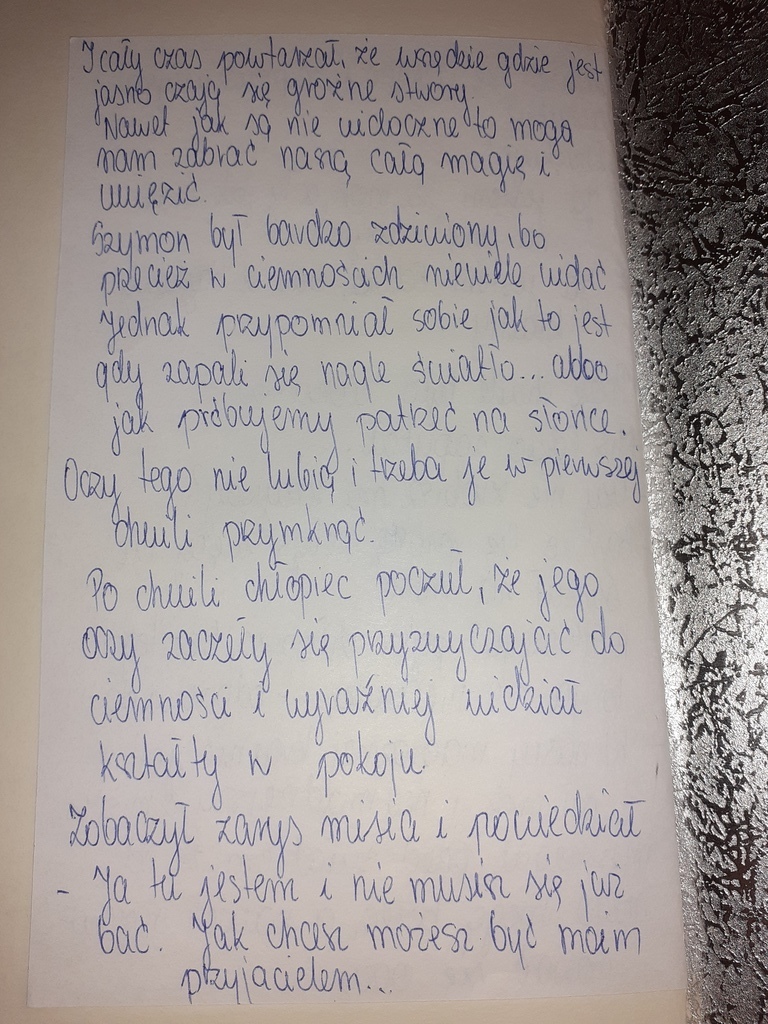 I cały czas powtarzał, że wszędzie gdzie jest
jasno czają się groźne stwory.
Nawet jak są nie widoczne to mogą
nam zabrać naszą całą magię i
uwięzić.
Szymon był bardzo zdziwiony, bo
przecież w ciemnościach niewiele widać
Jednak przypomniał sobie jak to jest
gdy zapali się nagle światło... abbo
jak próbujemy patrzeć na słońce.
Oczy tego nie lubią i trzeba je w pierwszej
chwili przymknąć.
Po chwili chłopiec poczuł, że jego
oczy zaczęły się przyzwyczajać do
ciemności i wyraźniej widział
kształty w pokoju.
Zobaczył zarys misia i powiedział
- Ja tu jestem i nie musisz się już
bać. Jak chcesz możesz być moim
przyjacielem...